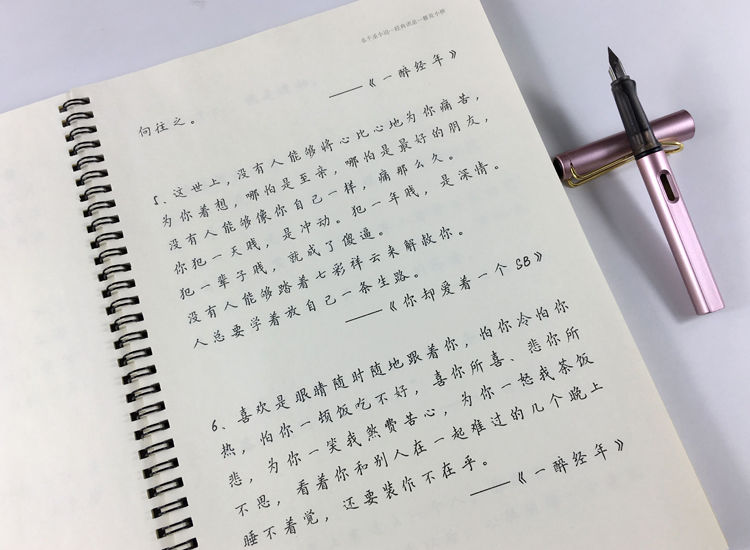 向往之。
——《一醉经年》
5、这世上，没有人能够将心比心地为你痛苦，
为你着想，哪怕是至亲，哪怕是最好的朋友，
没有人能够像你自己一样，痛那么久。
你犯一天贱，是冲动。犯一年贱，是深情。
犯一辈子贱，就成了傻逼。
没有人能够踏着七彩祥云来解救你。
人总要学着放自己一条生路。
——《你却爱着一个SB》
6、喜欢是眼睛随时随地跟着你，怕你冷怕你
热，怕你一顿饭吃不好，喜你所喜、悲你所
悲，为你一笑我煞费苦心，为你一怒我茶饭
不思，看着你和别人在一起难过的几个晚上
睡不着觉，还要装你不在乎。
——《一醉经年》